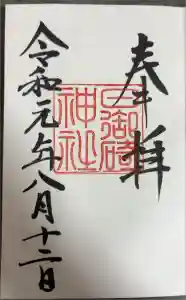 奉拝
日御碕神社
令和元年八月十二日